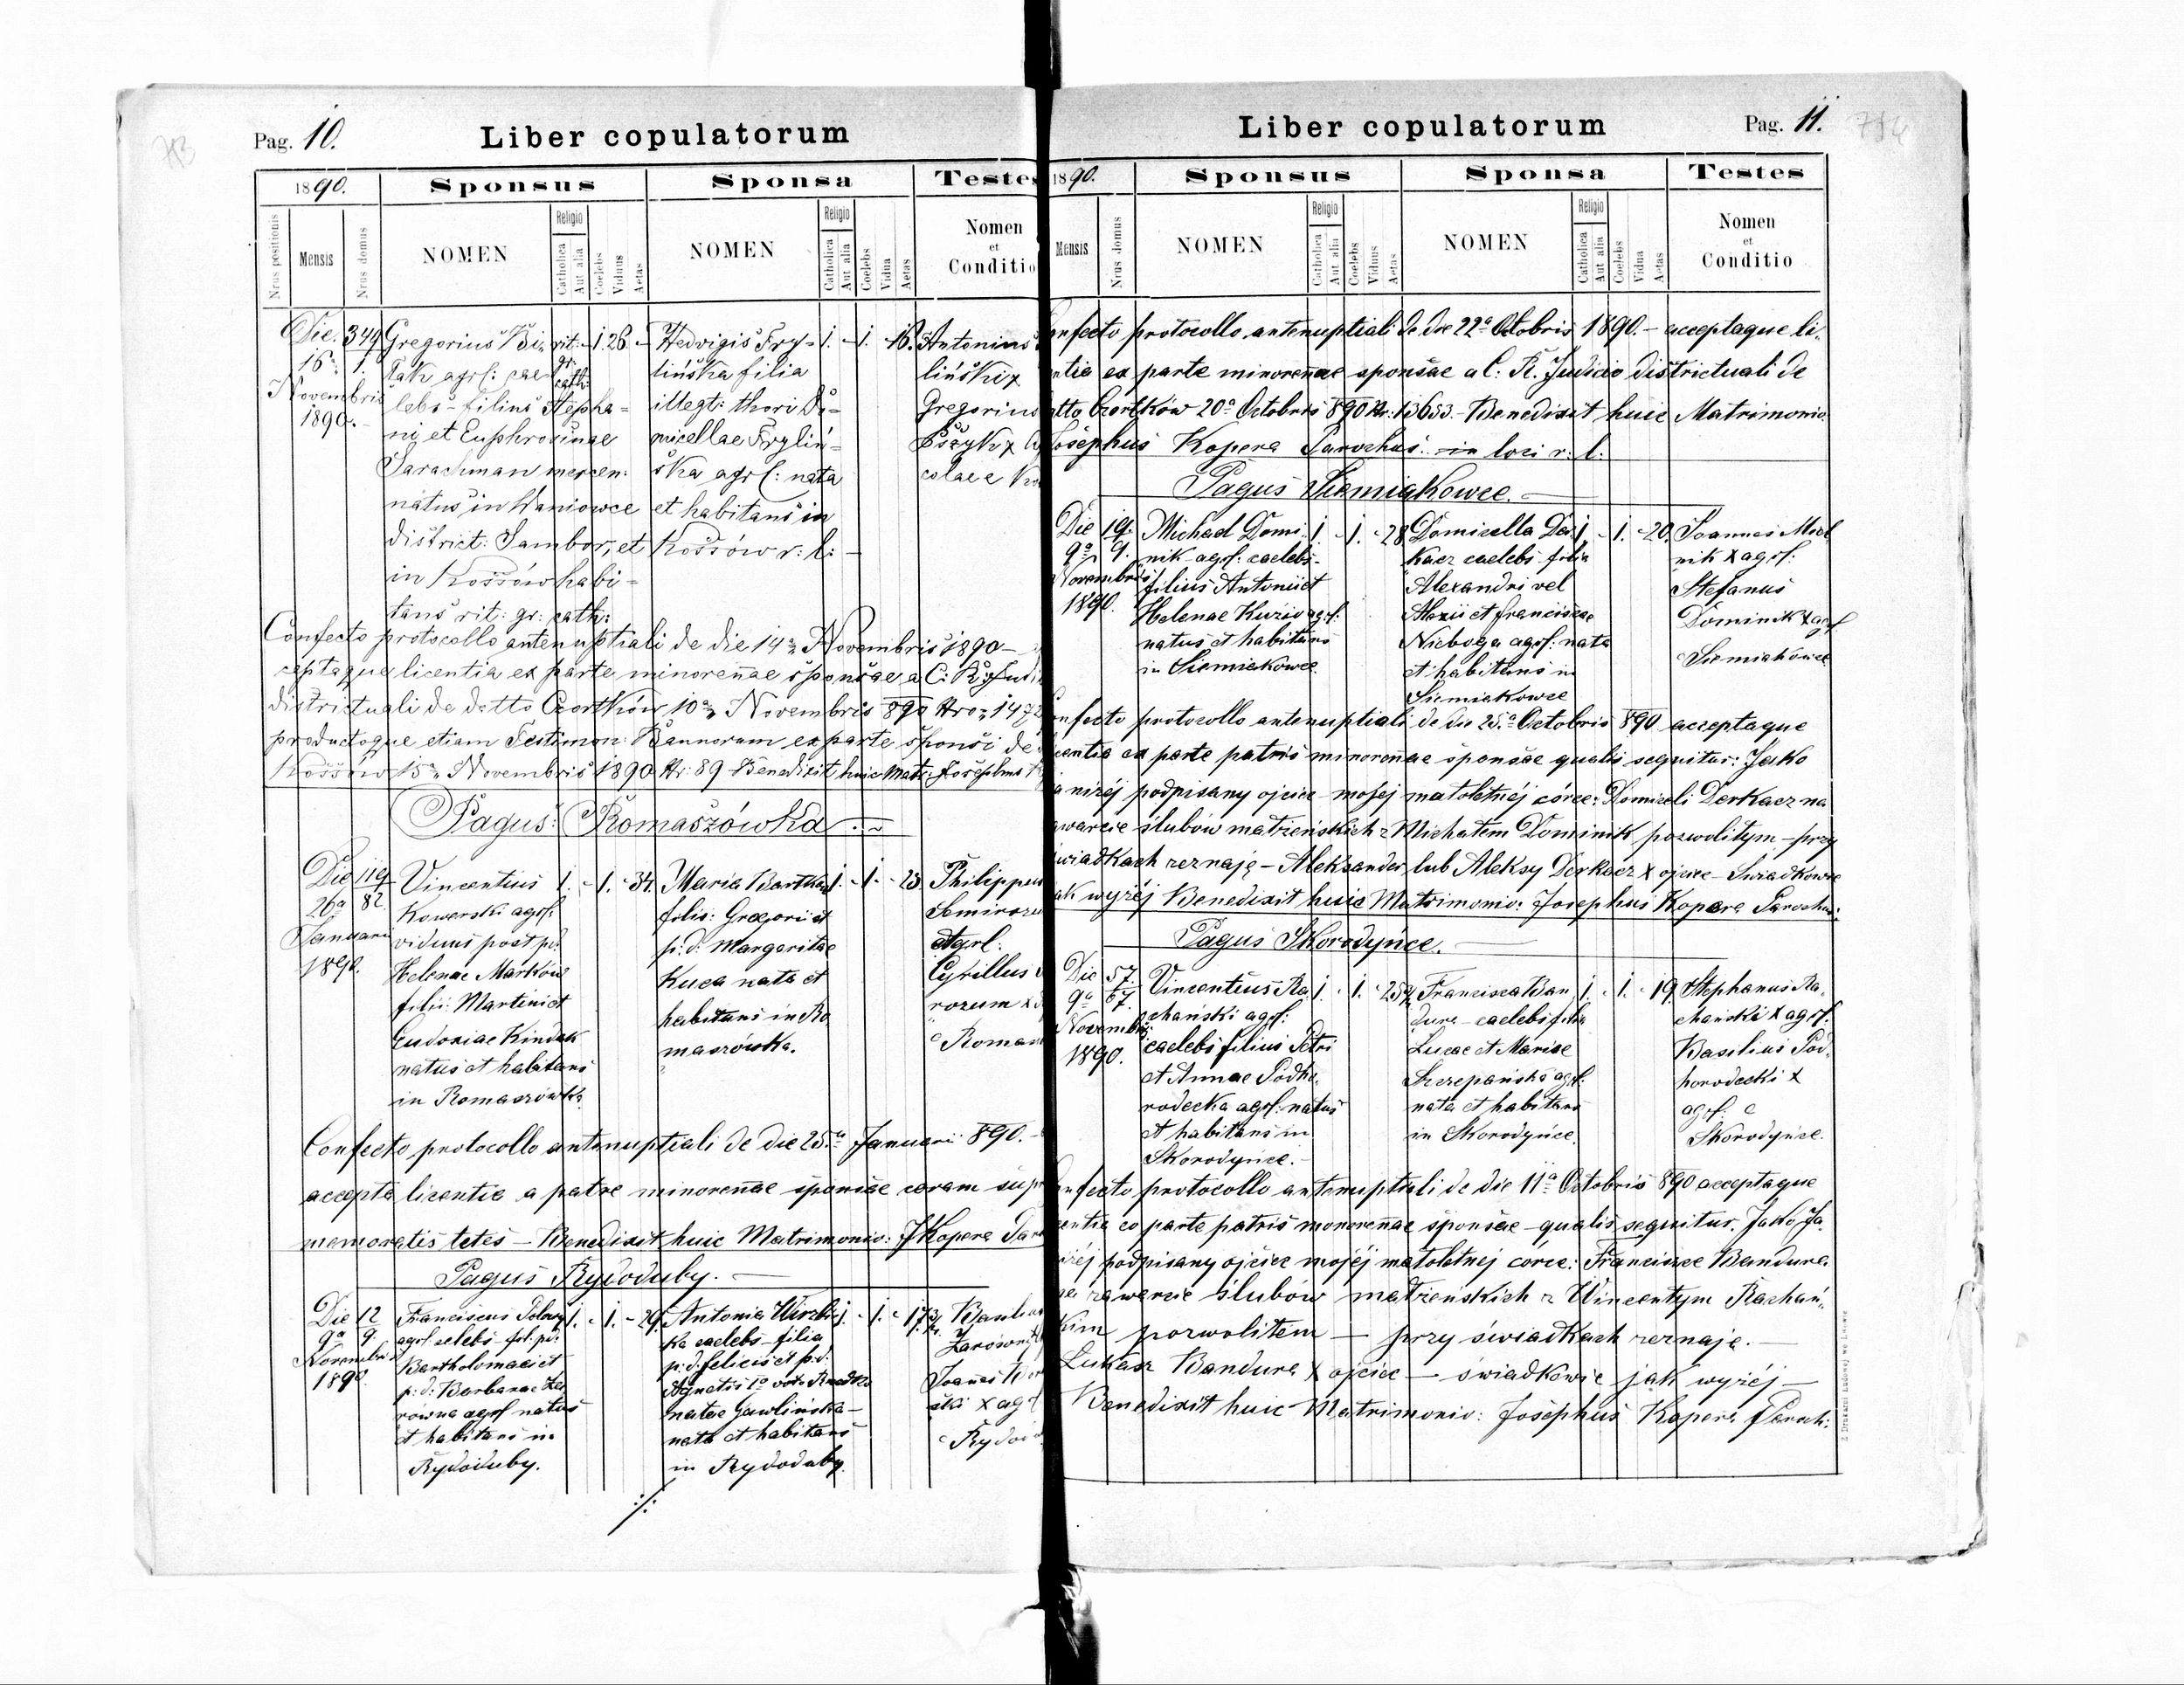 Pag. 10.
Liber copulatorum
1890.
Sponsus
Sponsa
Testes
Nrus positionis
Mensis
Nrus domus
NOMEN
Religio
Catholica
Aut alia
Coelebs
Viduus
Aetas
NOMEN
Religio
Catholica
Aut alia
Coelebs
Vidua
Aetas
Nomen
et
Conditio
Die
16ª
Novembris
1890.
Gregorius
rit. gr. cath:
1. 26.
lebs - filius Stepha-
ni et Euphrosinae
Sarachman mercen:
natus in Waniowce
district: Sambor, et
in Kossów habi-
tans rit: gr: cath:
Hedvigis Fry-
lińska filia
illegt: thori Do-
micellae Fryliń-
ska agrl: nata
et habitans in
Kossów r: l: -
1. - 1. - 18.
Antonius
liński x
Gregorius
colae e
Confecto protocollo antenuptiali de die 14ª Novembris 1890 -
ceptaque licentia ex parte minorennae sponsae a C: R:
districtuali de dotto Czortków 10ª Novembris 890 Nro
productoque etiam Testimon: Bannorum ex parte sponsi de
Kossów 15ª Novembris 1890 Nr: 89 Benedixit huic Matr: Josephus
Pagus: Romaszówka
Die
26ª
Januarii
1890.
119
82
Vincentius
Kowerski agrl:
viduus post p:
Helenae Marków
filii: Martini et
Eudoxiae Kindak
natus et habitans
in Romaszówka
1. - 1. - 34.
Maria
filia: Gregorii et
p: d: Margaritae
Kuca nata et
habitans in Ro
maszówka.
1. - 1. - 23
Philippus
et agrl:
Cyrillus
rozum x
e Roman
Confecto protocollo antenuptiali de die 25ª Januarii 890. -
accepta licentia a patre minorennae sponsae coram sup
memoratis tetes - Benedixit huic Matrimonio: J Kopera
Pagus Rydoduby.
Die
9ª
Novembris
1890
12
9.
Franciscus
agrl. celebs - fil. p:
Bartholomaei et
p: d: Barbarae
równa agrl natus
et habitans in
Rydoduby.
1. - 1. - 29.
Antonia
ka caelebs - filia
p: d: felicis et p: d:
Agnetis 1º voto
natae Gawlińska -
nata et habitans
in Rydoduby.
1. - 1. - 17
Joannes
ski x agr
e Rydod
Pag. 11.
Liber copulatorum
1890.
Sponsus
Sponsa
Testes
Mensis
Nrus domus
NOMEN
Religio
Catholica
Aut alia
Coelebs
Viduus
Aetas
NOMEN
Religio
Catholica
Aut alia
Coelebs
Vidua
Aetas
Nomen
et
Conditio
nfecto protocollo antenuptiali de die 22ª Octobris 1890. - acceptaque li-
ntia ex parte minorennae sponsae a C: R. Judicio districtuali de
tto Czortków 20ª Octobris 890 Nr: 13653. - Benedixit huic Matrimonio
Josephus Kopera Parochus in loci r: l:
Pagus Siemiakowce.
Die
9ª
Novembris
1890.
19.
9.
Michael Domi-
nik - agrl: caelebs -
filius Antonii et
Helenae agrl:
natus et habitans
in Siemiakowce
1. - 1. - 28
Domicella Der
kacz caelebs filia
Alexandri vel
Alexii et Franciscae
Nieboga agrl: nata
et habitans in
Siemiakowce
1. - 1. - 20.
Joannes
nik x agrl:
Stefanus
Dominik x agrl
e Siemiakowce
nfecto protocollo antenuptiali de die 25ª Octobris 890 acceptaque
centia ex parte patris minorennae sponsae qualis sequitur: Jako
a niżéj podpisany ojciec mojej małoletnéj córce: Domiceli Derkacz na
awarcie ślubów małżeńskich z Michałem Dominik pozwolilym - przy
wiadkach zeznaję - Aleksander lub Aleksy Derkacz x ojciec - Swiadkowie
ak wyżéj Benedixit huic Matrimonio: Josephus Kopera Parochus:
Pagus Skorodyńce.
Die
9ª
Novembris
1890.
57.
67
Vincentius Ra
chański agrl:
caelebs filius Petri
et Annae Podho-
rodecka agrl: natus
et habitans in
Skorodyńce. -
1. - 1. - 25
Francisca Ban
dura - caelebs filia
Lucae et Mariae
Szczepańska agrl:
nata et habitans
in Skorodyńce.
1. - 1. - 19.
Stephanus Ra-
chański x agrl.
Basilius Pod-
horodecki x
agrl: e
Skorodyńce.
nfecto protocollo antenuptiali de die 11ª Octobris 890 acceptaque
entia ex parte patris monorennae sponsae - qualis sequitur. Jako Ja-
żéj podpisany ojciec mojéj małoletnej córce: Franciszce Bandura
na zawarcie ślubów małżeńskich z Wincentym Rachań-
kim pozwoliłem - przy świadkach zeznaję. -
Łukasz Bandura x ojciec - świadkowie jak wyżéj -
Benedixit huic Matrimonio: Josephus Kopera Paroch: